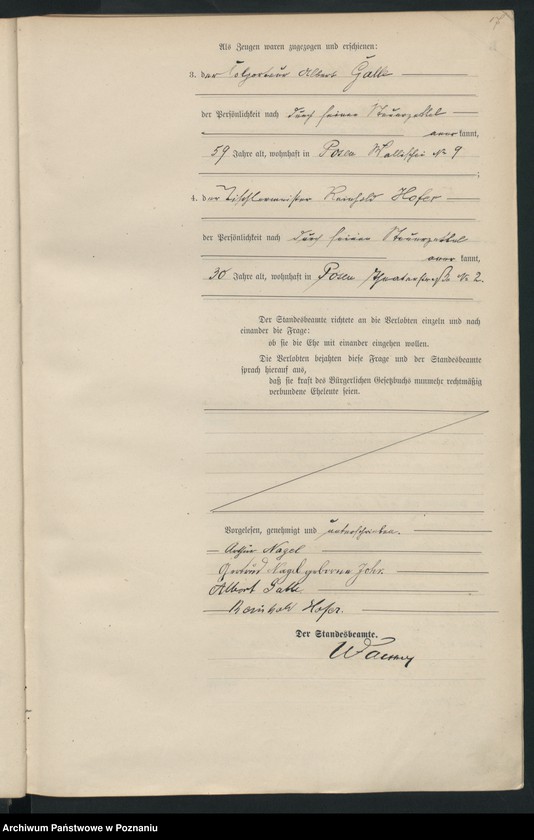 7
Als Zeugen waren zugezogen und erschienen:
3. der Colporteur Albert
der Persönlichkeit nach durch seinen Steuerzettel
aner kannt,
59 Jahre alt, wohnhaft in Posen Wallischei No 9
;
4. der Tischlermeister Reinhold Hofer
der Persönlichkeit nach durch seinen Steuerzettel
aner kannt,
30 Jahre alt, wohnhaft in Posen Theaterstraße No 2.
Der Standesbeamte richtete an die Verlobten einzeln und nach
einander die Frage:
ob sie die Ehe mit einander eingehen wollen.
Die Verlobten bejahten diese Frage und der Standesbeamte
sprach hierauf aus,
daß sie kraft des Bürgerlichen Gesetzbuchs nunmehr rechtmäßig
verbundene Eheleute seien.
Vorgelesen, genehmigt und unterschrieben.
Arthur Nagel
Gertrud Nagel geborene
Albert
Reinhold Hofer.
Der Standesbeamte.
Archiwum Państwowe w Poznaniu